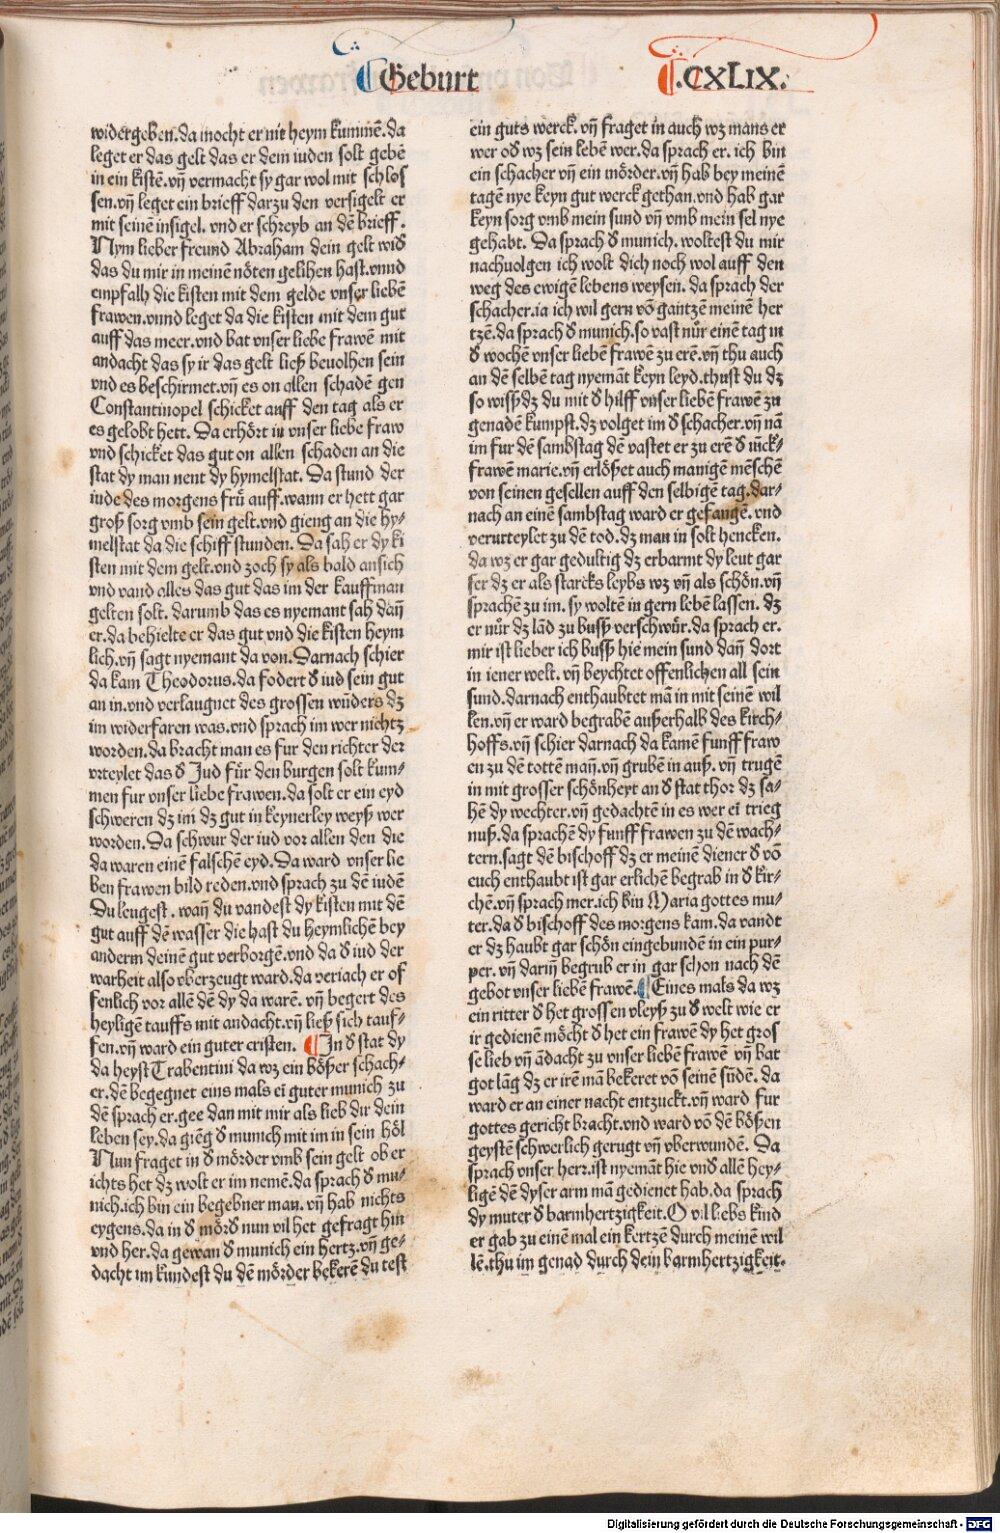 Geburt
.CXLIX.
widergeben.da mocht er nit heym kummē.da
leget er das gelt das er dem iuden solt gebē
in ein kistē.vn̄ vermacht sy gar wol mit schlos
sen.vn̄ leget ein brieff darzu den versigelt er
mit seinē insigel. vnd er schreyb an dē brieff.
Nym lieber freund Abraham dein gelt wiđ
das du mir in meinē nöten gelihen hast.vnnd
empfalh die kisten mit dem gelde vnser liebē
frawen.vnnd leget da die kisten mit dem gut
auff das meer.vnd bat vnser liebe frawē mit
andacht das sy ir das gelt ließ beuolhen sein
vnd es beschirmet.vn̄ es on allen schadē gen
Constantinopel schicket auff den tag als er
es gelobt hett. Da erhört in vnser liebe fraw
vnd schicket das gut on allen schaden an die
stat dy man nent dy hymelstat. Da stund der
iude des morgens frů auff.wann er hett gar
groß sorg vmb sein gelt.vnd gieng an die hy⸗
melstat da die schiff stunden. Da sah er dy ki
sten mit dem gelt.vnd zoch sy als bald an sich
vnd vand alles das gut das im der kauffman
gelten solt. darumb das es nyemant sah dan̄
er.da behielte er das gut vnd die kisten heym
lich.vn̄ sagt nyemant da von.Darnach schier
da kam Theodorus.da fodert đ iud sein gut
an in.vnd verlaugnet des grossen wūders dz
im widerfaren was.vnd sprach im wer nichtz
worden.da bracht man es fur den richter der
vrteylet das đ Jud fůr den burgen solt kum⸗
men fur vnser liebe frawen.da solt er ein eyd
schweren dz im dz gut in keynerley weyß wer
worden. Da schwur der iud vor allen den die
da waren einē falschē eyd. Da ward vnser lie
ben frawen bild reden.vnd sprach zu dē iudē
Du leugest. wan̄ du vandest dy kisten mit dē
gut auff dē wasser die hast du heymlichē bey
anderm deinē gut verborgē.vnd da đ iud der
warheit also vberzeugt ward.da veriach er of
fenlich vor allē dē dy da warē. vn̄ begert des
heyligē tauffs mit andacht.vn̄ ließ sich tauf⸗
fen.vn̄ ward ein guter cristen. ¶ In đ stat dy
da heyst Trabentini da wz ein bößer schach⸗
er.dē begegnet eins mals ei̅ guter munich zu
dē sprach er.gee dan mit mir als lieb dir dein
leben sey.da giēg đ munich mit im in sein höl
Nun fraget in đ mörder vmb sein gelt ob er
ichts het dz wolt er im nemē.da sprach đ mu⸗
nich.ich bin ein begebner man. vn̄ hab nichts
eygens.da in đ mörđ nun vil het gefragt hin
vnd her.da gewan đ munich ein hertz.vn̄ ge⸗
dacht im kundest du dē mörder bekerē du test
ein guts werck. vn̄ fraget in auch wz mans er
wer ođ wz sein lebē wer.da sprach er. ich bin
ein schacher vn̄ ein mörder.vn̄ hab bey meinē
tagē nye keyn gut werck gethan.vnd hab gar
keyn sorg vmb mein sund vn̄ vmb mein sel nye
gehabt. Da sprach đ munich. woltest du mir
nachuolgen ich wolt dich noch wol auff den
weg des ewigē lebens weysen. da sprach der
schacher.ia ich wil gern vō gantzē meinē her
tzē.da sprach đ munich.so vast nůr einē tag in
đ wochē vnser liebē frawē zu erē.vn̄ thu auch
an dē selbē tag nyemāt keyn leyd.thust du dz
so wißdz du mit đ hilff vnser liebē frawē zu
genadē kumpst.dz volget im đ schacher.vn̄ nā
im fur dē sambstag dē vastet er zu erē đ iūck⸗
frawē marie.vn̄ erlößet auch manigē mēschē
von seinen gesellen auff den selbigē tag.dar⸗
nach an einē sambstag ward er gefangē. vnd
verurteylet zu dē tod.dz man in solt hencken.
da wz er gar gedultig dz erbarmt dy leut gar
ser dz er als starcks leybs wz vn̄ als schön.vn̄
sprachē zu im. sy woltē in gern lebē lassen. dz
er nůr dz lād zu buß verschwůr.da sprach er.
mir ist lieber ich buß hie mein sund dan̄ dort
in iener welt. vn̄ beychtet offenlichen all sein
sund.darnach enthaubtet mā in mit seinē wil
len.vn̄ er ward begrabē außerhalb des kirch⸗
hoffs.vn̄ schier darnach da kamē funff fraw
en zu dē tottē man̄.vn̄ grubē in auß. vn̄ trugē
in mit grosser schönheyt an đ stat thor dz sa⸗
hē dy wechter.vn̄ gedachtē in es wer ei̅ trieg
nuß.da sprachē dy funff frawen zu dē wach⸗
tern.sagt dē bischoff dz er meinē diener đ vō
euch enthaubt ist gar erlichē begrab in đ kir⸗
chē.vn̄ sprach mer.ich bin Maria gottes mu⸗
ter.da đ bischoff des morgens kam.da vandt
er dz haubt gar schön eingebundē in ein pur⸗
per. vn̄ darin̄ begrub er in gar schon nach dē
gebot vnser liebē frawē. ¶ Eines mals da wz
ein ritter đ het grossen vleyß zu đ welt wie er
ir gedienē möcht đ het ein frawē dy het gros
se lieb vn̄ ādacht zu vnser liebē frawē vn̄ bat
got lāg dz er irē mā bekeret vō seinē sūdē. da
ward er an einer nacht entzuckt.vn̄ ward fur
gottes gericht bracht.vnd ward vō dē bößen
geystē schwerlich gerugt vn̄ vberwundē. Da
sprach vnser herr.ist nyemāt hie vnđ allē hey⸗
ligē dē dyser arm mā gedienet hab.da sprach
dy muter đ barmhertzigkeit.O vil liebs kind
er gab zu einē mal ein kertzē durch meinē wil
lē.thu im genad durch dein barmhertzigkeit.
Digitalisierung gefördert durch die Deutsche Forschungsgemeinschaft - DFG